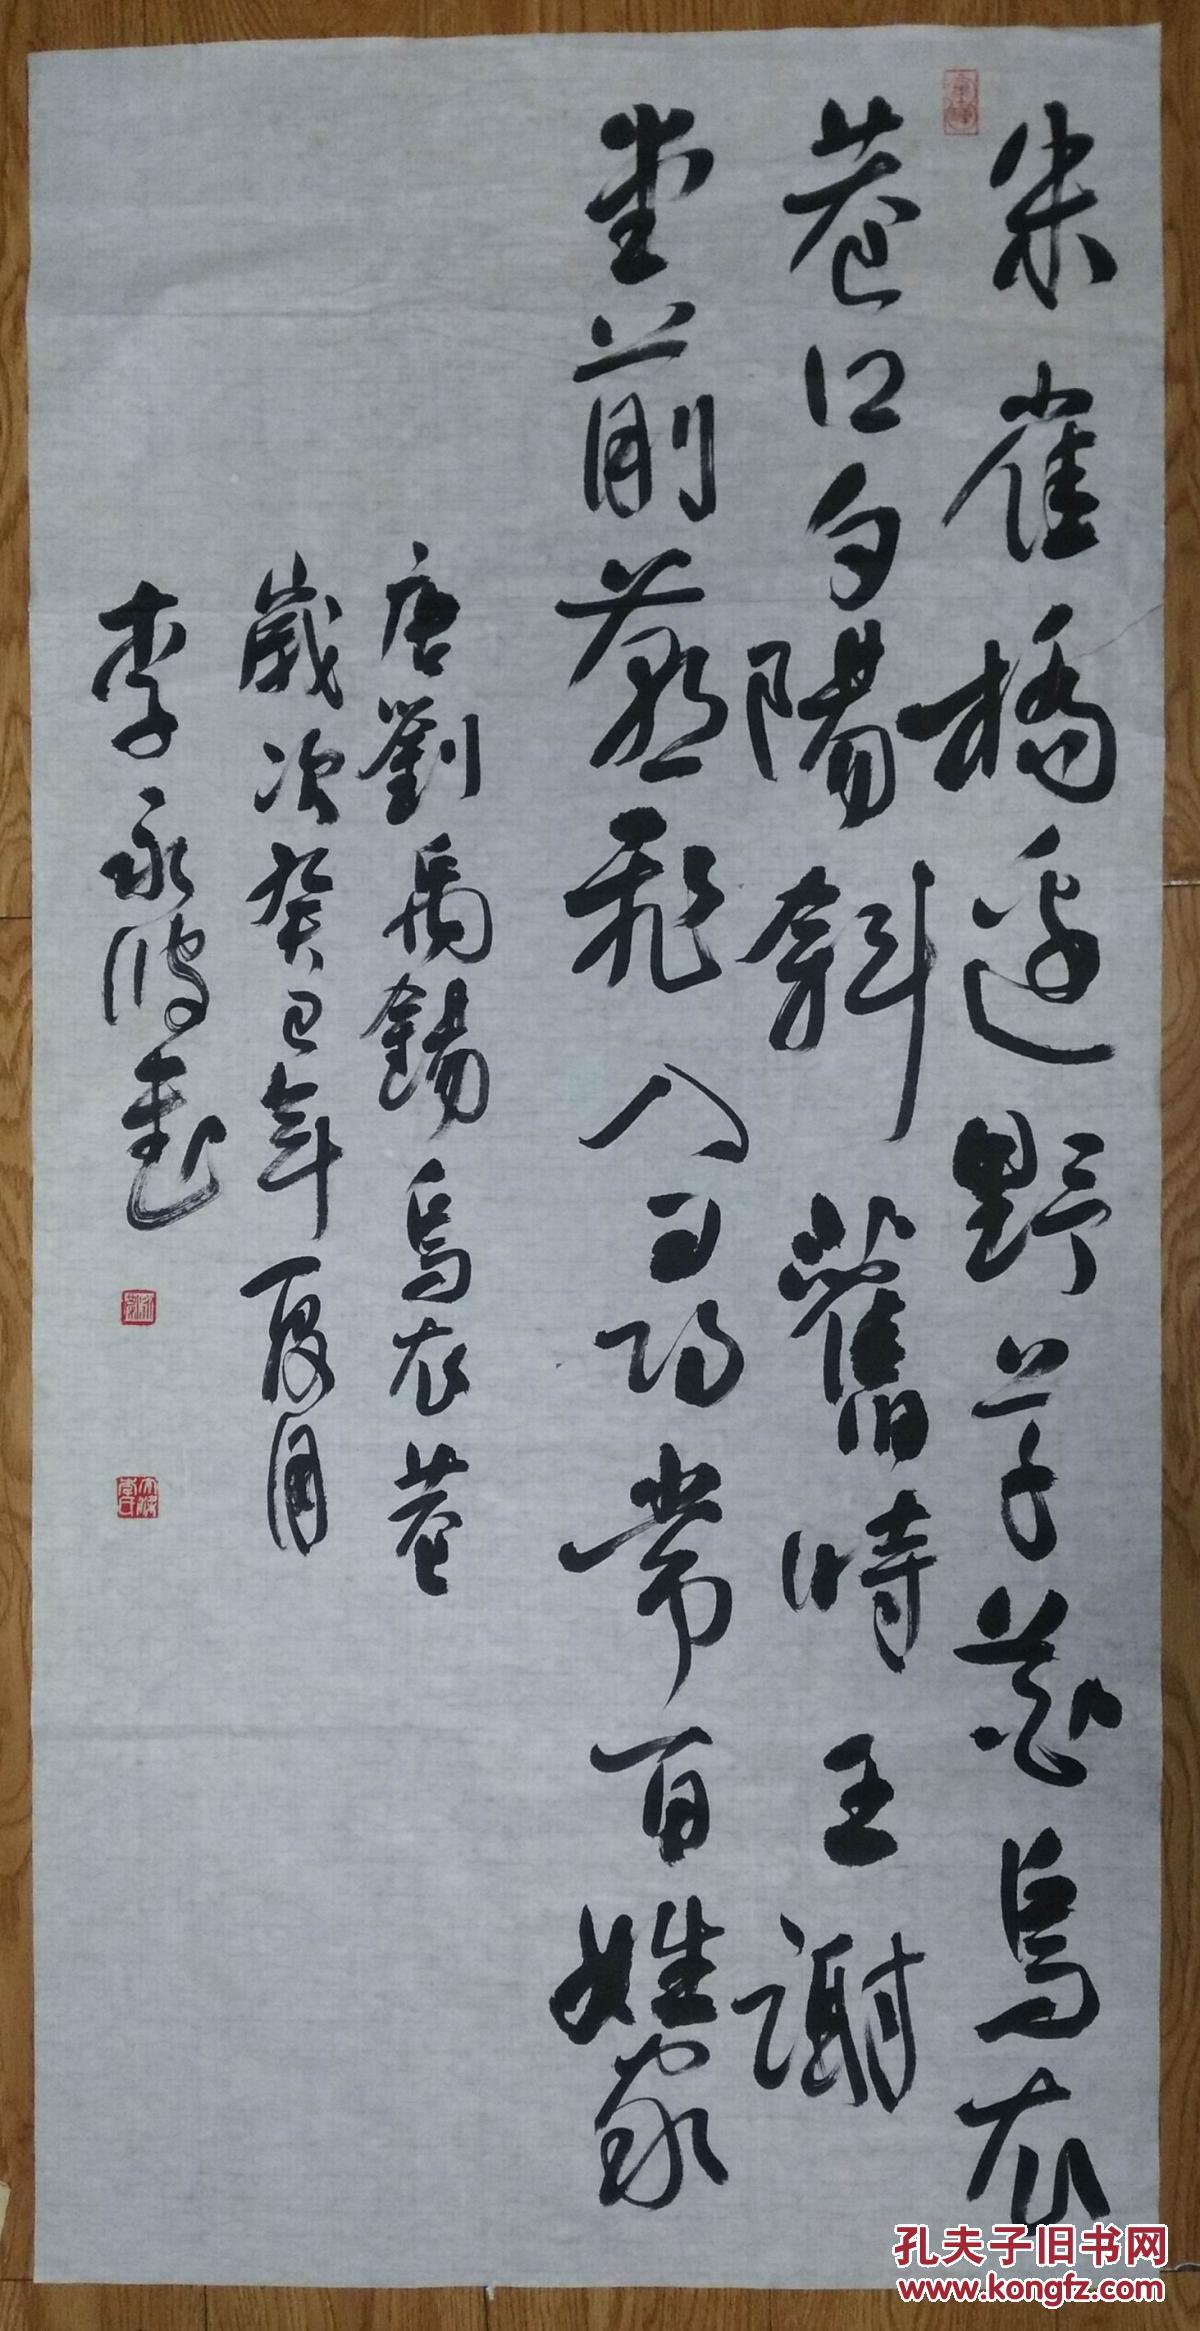 朱雀橋邊野草花烏衣
巷口夕陽斜舊時王謝
堂前燕飛入尋常百姓家
唐劉禹錫烏衣巷
歲次癸巳年夏月
李永波
孔夫子旧书网
www.kongfz.com